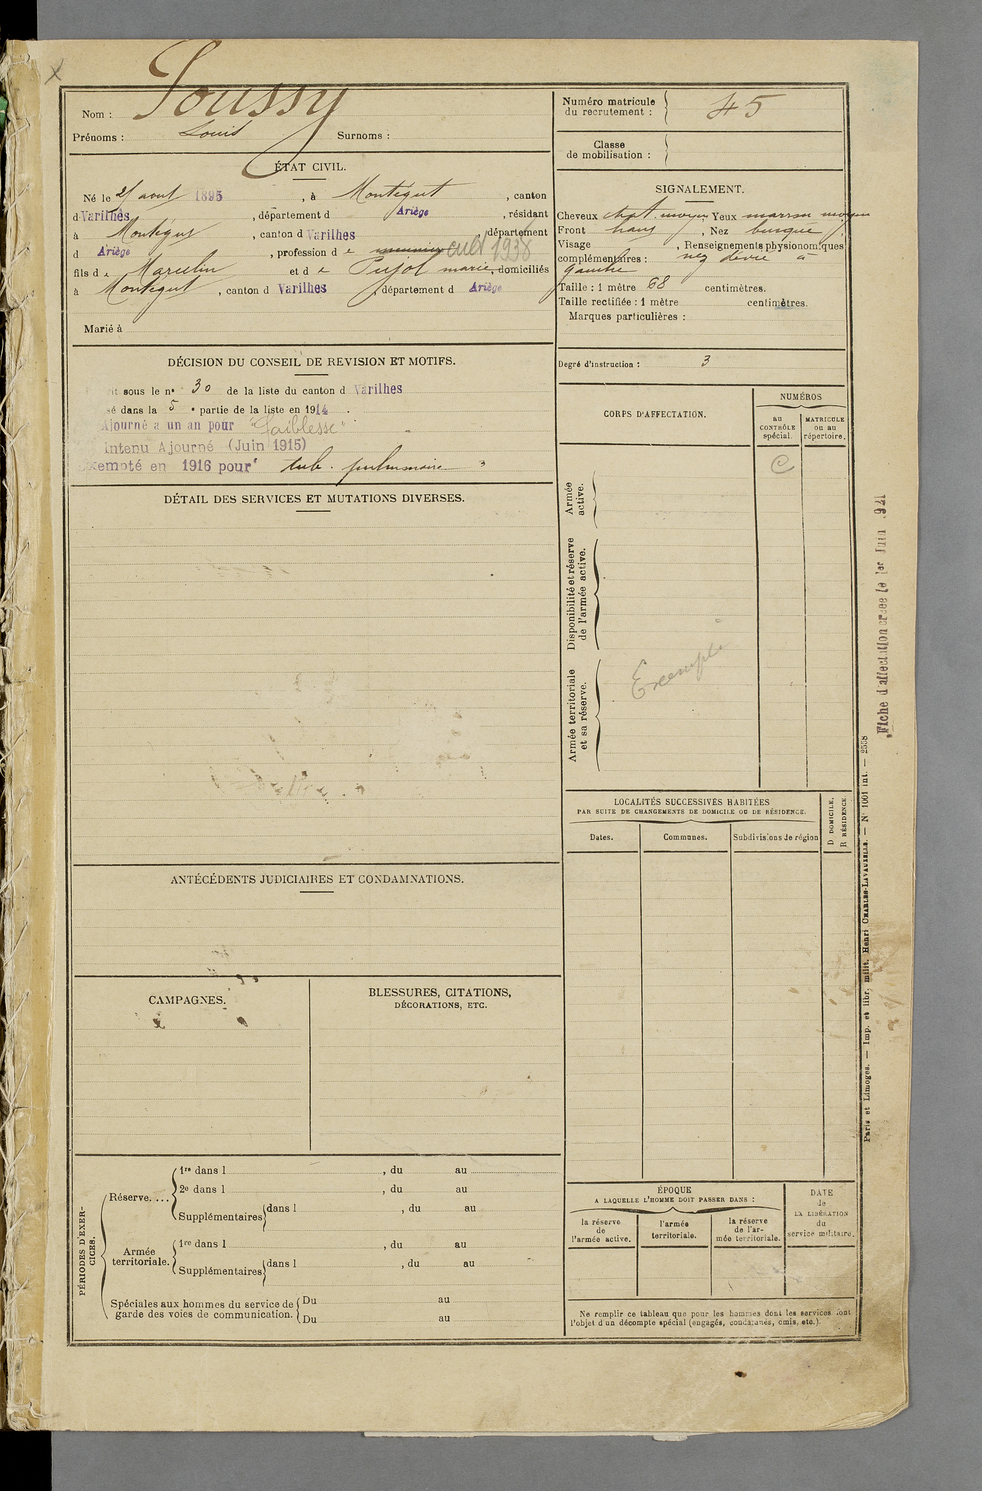 Nom : Soussy
Prénoms : Louis Surnoms :
ÉTAT CIVIL.
Né le août 1895, à Montégut, canton
d Varilhes, département d Ariège, résidant
à Montégut, canton d Varilhes, département
d Ariège, profession d e cult 1938
fils d e Marcelin et d e Pujol marie, domiciliés
à Montégut, canton d Varilhes, département d Ariège
Marié à
DÉCISION DU CONSEIL DE REVISION ET MOTIFS.
it sous le n° 30 de la liste du canton d Varilhes
é dans la 5 e partie de la liste en 1914.
Ajourné a un an pour "faiblesse"
intenu Ajourné (Juin 1915)
xempté en 1916 pour " tub. pulmonaire "
DÉTAIL DES SERVICES ET MUTATIONS DIVERSES.
ANTÉCÉDENTS JUDICIAIRES ET CONDAMNATIONS.
CAMPAGNES.
BLESSURES, CITATIONS,
DÉCORATIONS, ETC.
PÉRIODES D'EXER-
CICES.
Réserve....
1re dans l , du au
2e dans l , du au
Supplémentaires dans l , du au
Armée
territoriale.
1re dans l , du au
Supplémentaires dans l , du au
Spéciales aux hommes du service de
garde des voies de communication.
Du au
Du au
Numéro matricule
du recrutement : 45
Classe
de mobilisation :
SIGNALEMENT.
Cheveux chat. moyen, Yeux marron moyen
Front haut, Nez busqué,
Visage , Renseignements physionomiques
complémentaires : nez dévié à
gauche
Taille : 1 mètre 68 centimètres.
Taille rectifiée : 1 mètre centimètres.
Marques particulières :
Degré d'instruction : 3
CORPS D'AFFECTATION.
NUMÉROS
au
CONTRÔLE
spécial.
MATRICULE
ou au
répertoire.
C
Armée
active.
Disponibilité et réserve
de l'armée active.
Armée territoriale
et sa réserve.
Exempté
LOCALITÉS SUCCESSIVES HABITÉES
PAR SUITE DE CHANGEMENTS DE DOMICILE OU DE RÉSIDENCE.
Dates.
Communes.
Subdivisions de région
D DOMICILE.
R RÉSIDENCE.
ÉPOQUE
A LAQUELLE L'HOMME DOIT PASSER DANS :
la réserve
de
l'armée active.
l'armée
territoriale.
la réserve
de l'ar-
mée territoriale.
DATE
de
LA LIBÉRATION
du
service militaire.
Ne remplir ce tableau que pour les hommes dont les services font
l'objet d'un décompte spécial (engagés, condamnés, omis, etc.).
Fiche d'affectation créée le 1er Juin 1921
Paris et Limoges. — Imp. et libr. milit. Henri CHARLES-LAVAUZELLE. — N° 1001 int. — 2558